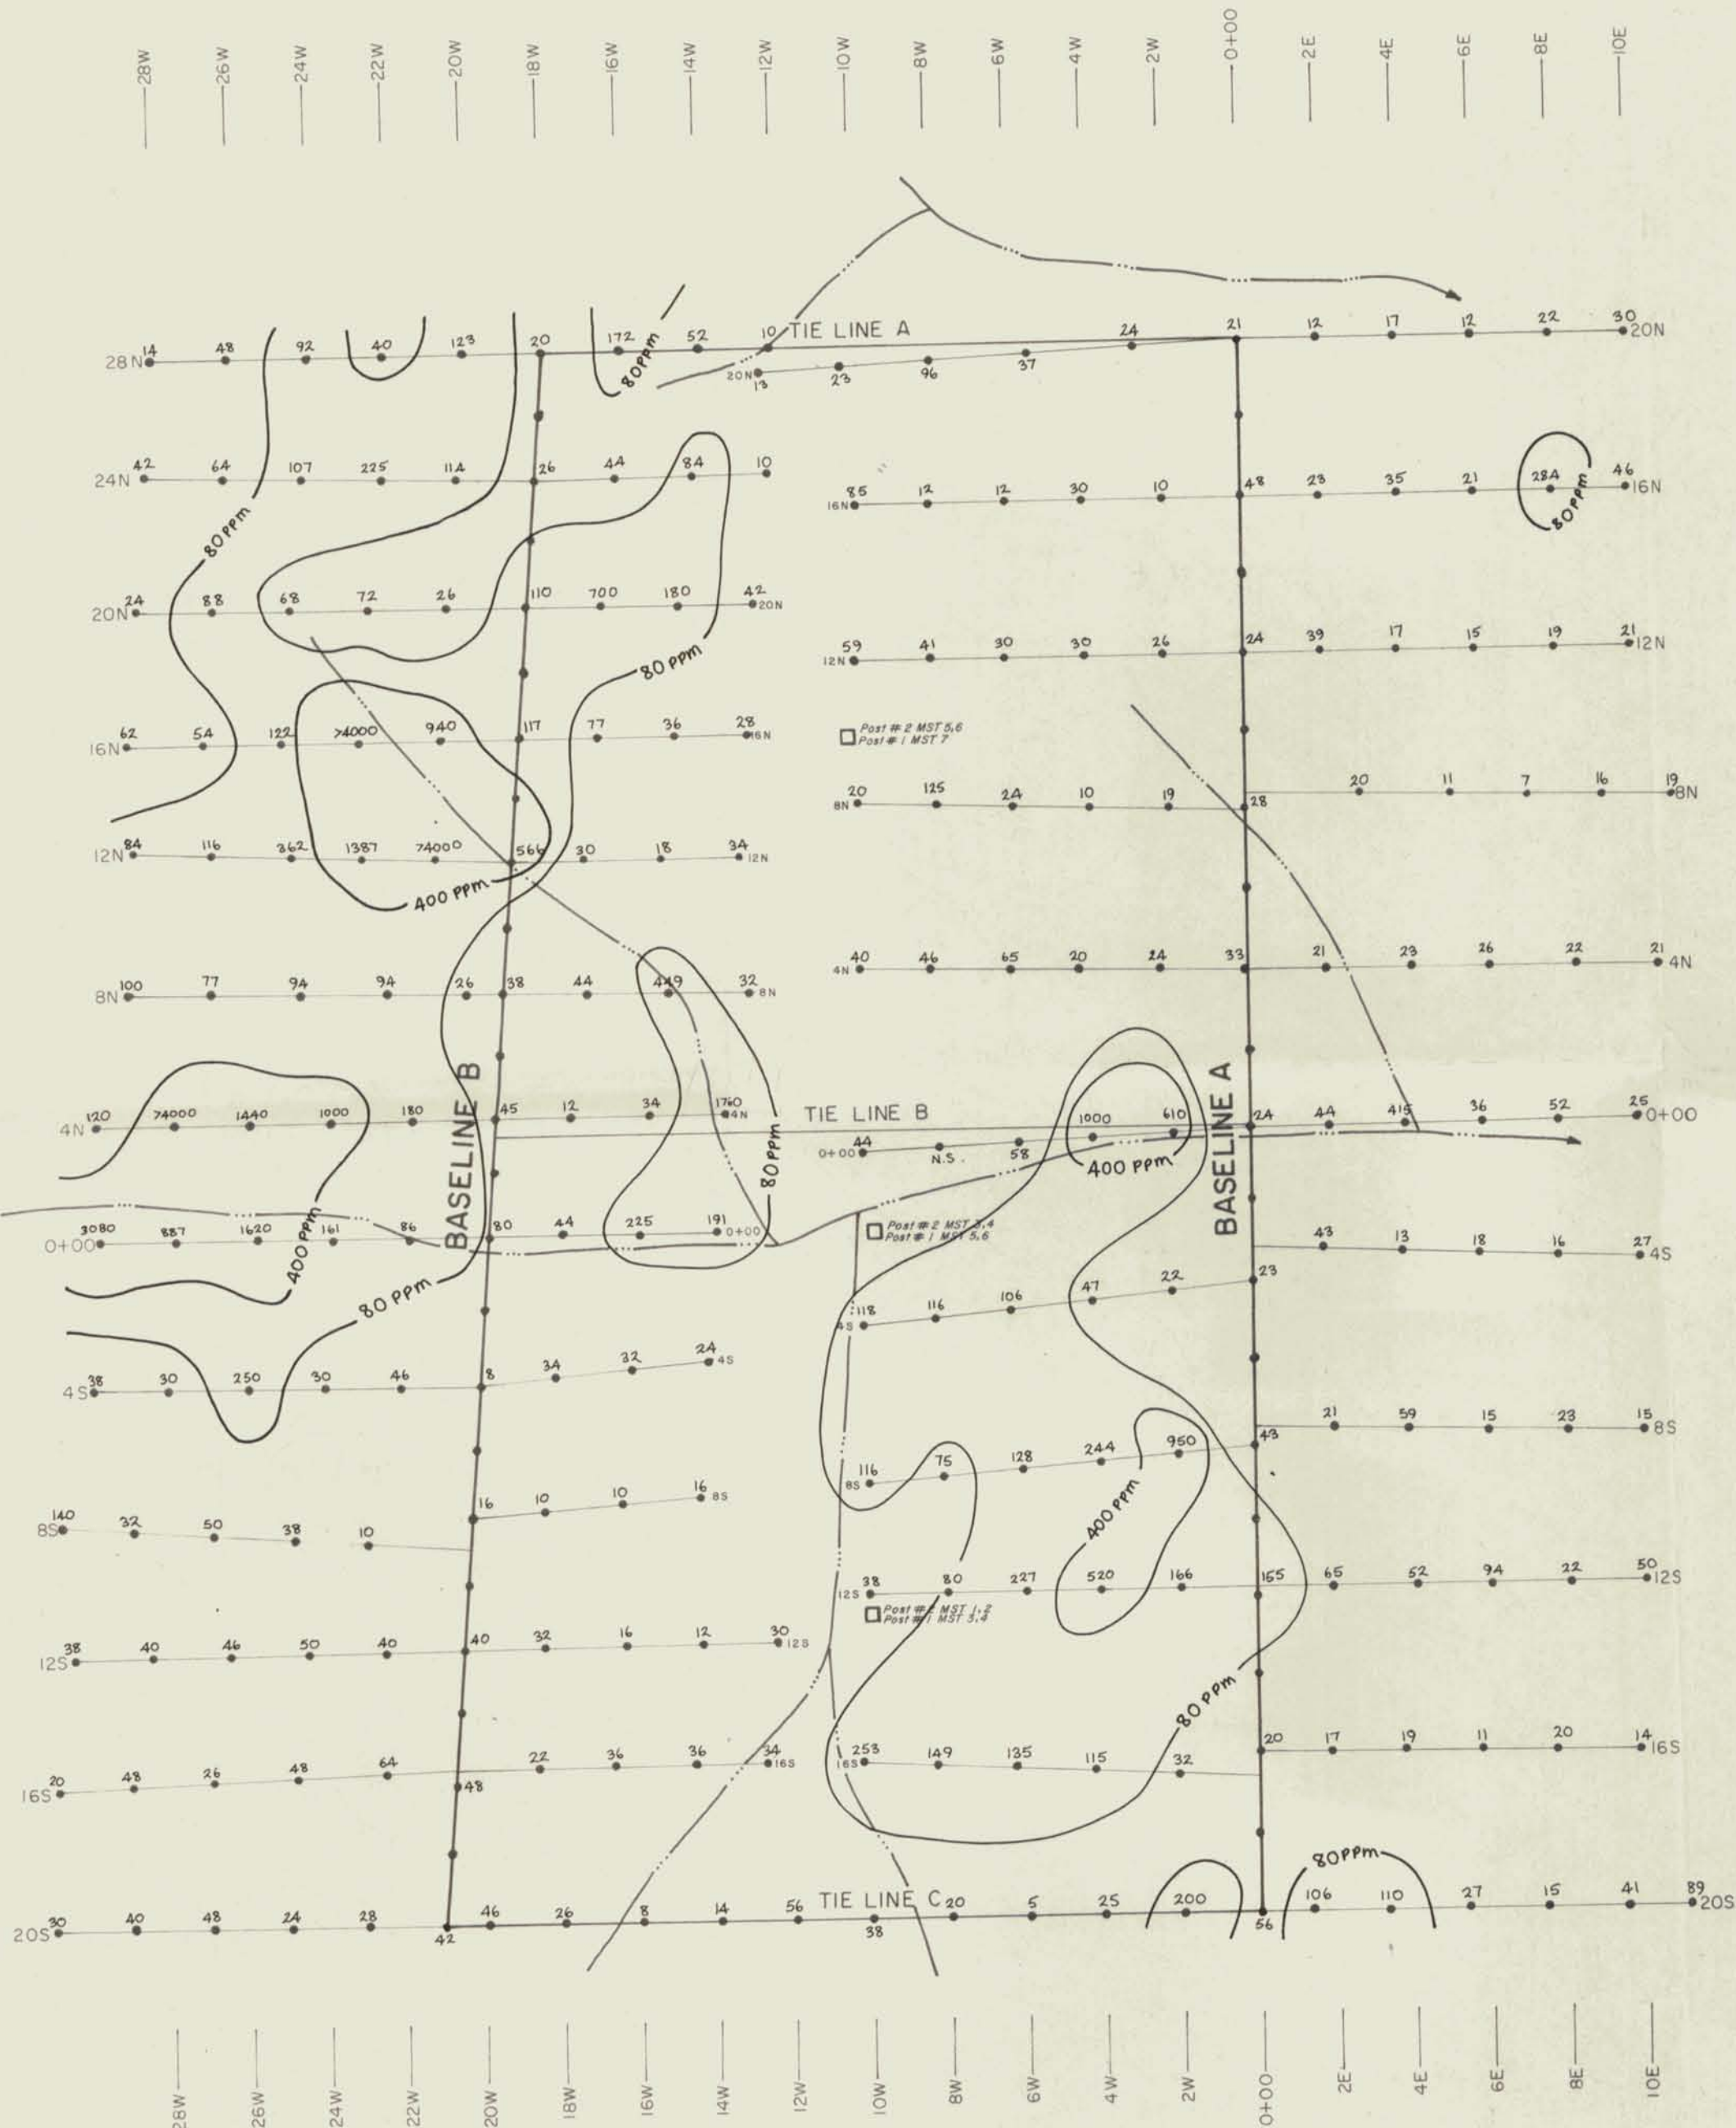 28W 26W 24W 22W 20W 18W 16W 14W 12W 10W 8W 6W 4W 2W 0+00 2E 4E 6E 8E 10E
TIE LINE A
28N 14 48 92 40 123 20 172 52 10
24 21 12 17 12 22 30 20N
20N 13 23 96 37
80PPM
24N 42 64 107 225 114 26 44 84 10
16N 85 12 12 30 10 48 23 35 21 284 46 16N
80PPM
80PPM
20N 24 88 68 72 26 110 700 180 42 20N
12N 59 41 30 30 26 24 39 17 15 19 21 12N
80 PPM
16N 62 54 122 >4000 940 117 77 36 28 16N
Post # 2 MST 5,6
Post # 1 MST 7
8N 20 125 24 10 19 28 20 11 7 16 19 8N
12N 84 116 362 1387 >4000 566 30 18 34 12N
400 PPM
4N 40 46 65 20 24 33 21 23 26 22 21 4N
8N 100 77 94 94 26 38 44 449 32 8N
BASELINE B
BASELINE A
4N 120 >4000 1440 1000 180 45 12 34 1760 4N
TIE LINE B
0+00 44 N.S. 58 1000 610 24 44 415 36 52 25 0+00
400 PPM
80PPM
0+00 3080 887 1620 161 86 80 44 225 191 0+00
Post # 2 MST 3,4
Post # 1 MST 5,6
43 13 18 16 27 4S
400PPM
80 PPM
4S 118 116 106 47 22 23
4S 38 30 250 30 46 8 34 32 24 4S
21 59 15 23 15 8S
8S 116 75 128 244 950 43
400 PPM
8S 140 32 50 38 10 16 10 10 16 8S
12S 38 80 227 520 166 155 65 52 94 22 50 12S
Post # 2 MST 1,2
Post # 1 MST 3,4
12S 38 40 46 50 40 40 32 16 12 30 12S
80 PPM
16S 20 48 26 48 64 48 22 36 36 34 16S
16S 253 149 135 115 32 20 17 19 11 20 14 16S
80PPM
TIE LINE C
20S 30 40 48 24 28 42 46 26 8 14 56 38 20 5 25 200 56 106 110 27 15 41 89 20S
28W 26W 24W 22W 20W 18W 16W 14W 12W 10W 8W 6W 4W 2W 0+00 2E 4E 6E 8E 10E